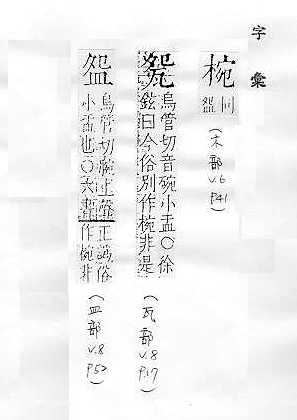 字彙
椀
同
盌
(木部 v.6 p41)
㼝
烏管切音碗小盂○徐
鉉曰今俗別作椀非是
(瓦部 v.8 p.17)
盌
烏管切碗上聲正譌俗
小盂也○六書作椀非
(皿部 v.8 p52)